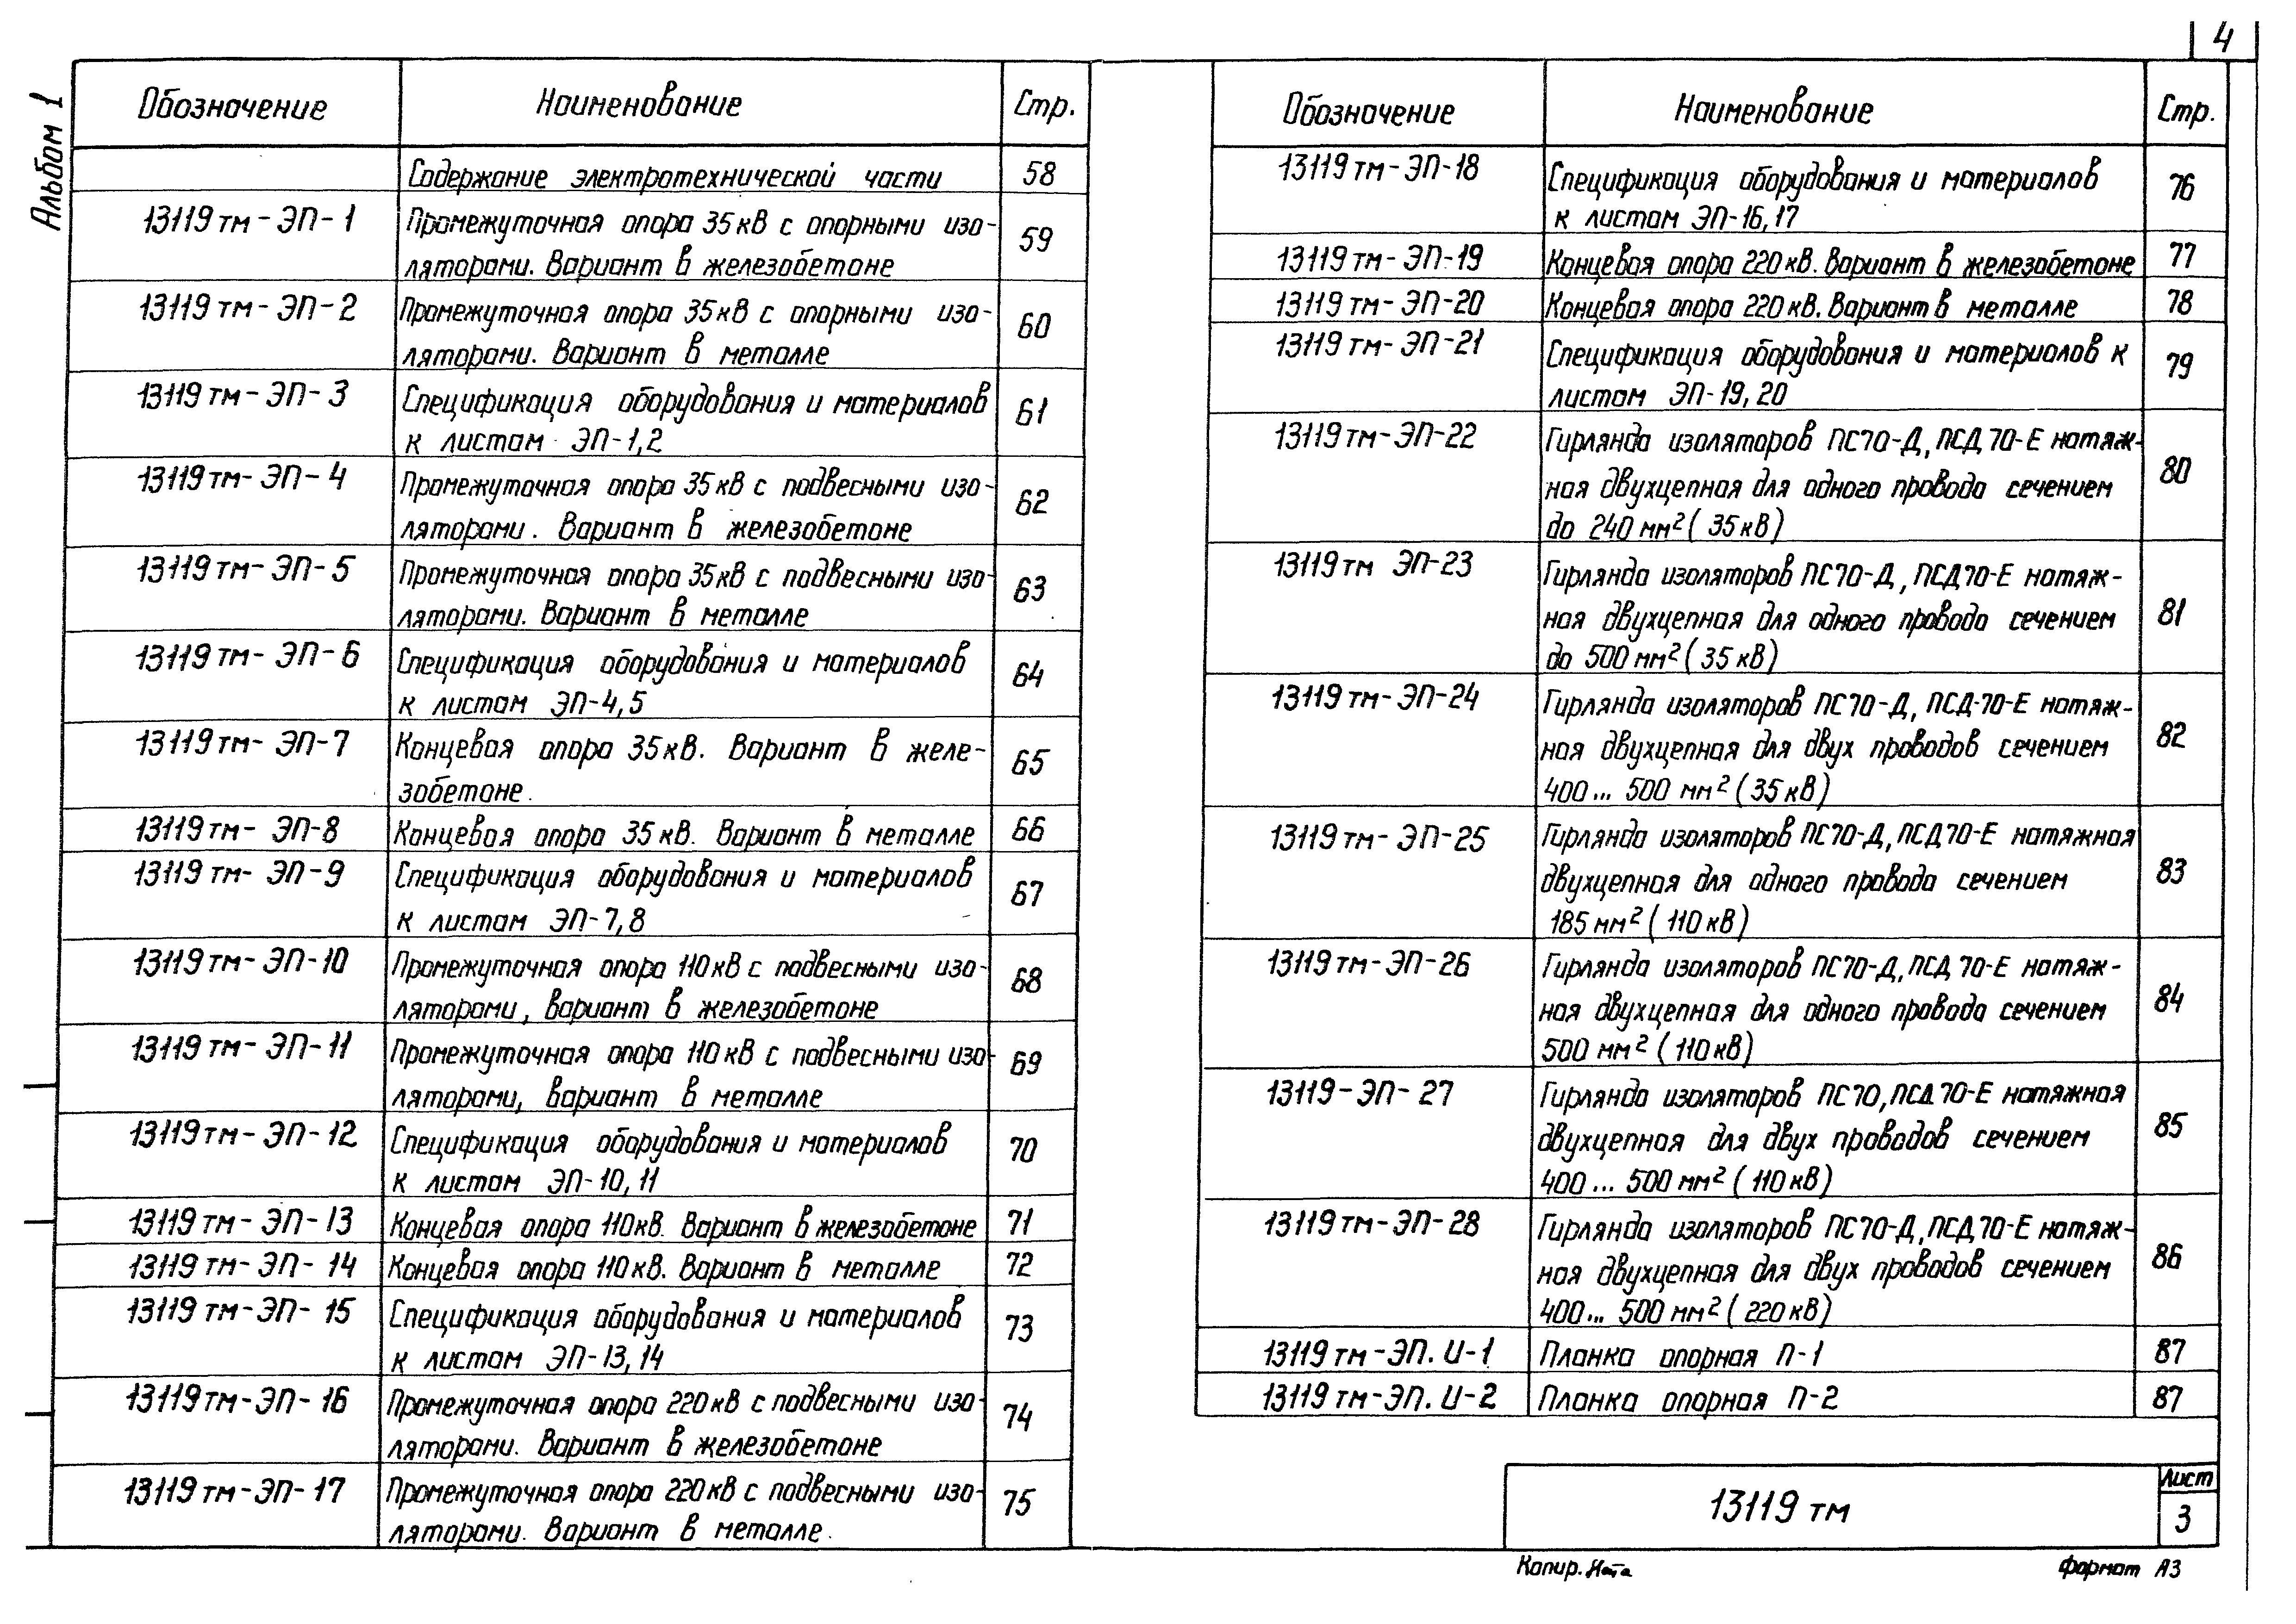 4
Альбом 1
Обозначение Наименование Стр.
Содержание электротехнической части 58
13119 тм-ЭП-1 Промежуточная опора 35 кВ с опорными изо- 59
ляторами. Вариант в железобетоне
13119 тм-ЭП-2 Промежуточная опора 35 кВ с опорными изо- 60
ляторами. Вариант в металле
13119 тм-ЭП-3 Спецификация оборудования и материалов 61
к листам ЭП-1,2
13119 тм-ЭП-4 Промежуточная опора 35 кВ с подвесными изо- 62
ляторами. Вариант в железобетоне
13119 тм-ЭП-5 Промежуточная опора 35 кВ с подвесными изо- 63
ляторами. Вариант в металле
13119 тм-ЭП-6 Спецификация оборудования и материалов 64
к листам ЭП-4,5
13119 тм-ЭП-7 Концевая опора 35 кВ. Вариант в желе- 65
зобетоне.
13119 тм-ЭП-8 Концевая опора 35 кВ. Вариант в металле 66
13119 тм-ЭП-9 Спецификация оборудования и материалов 67
к листам ЭП-7,8
13119 тм-ЭП-10 Промежуточная опора 110 кВ с подвесными изо- 68
ляторами, вариант в железобетоне
13119 тм-ЭП-11 Промежуточная опора 110 кВ с подвесными изо- 69
ляторами, вариант в металле
13119 тм-ЭП-12 Спецификация оборудования и материалов 70
к листам ЭП-10,11
13119 тм-ЭП-13 Концевая опора 110 кВ. Вариант в железобетоне 71
13119 тм-ЭП-14 Концевая опора 110 кВ. Вариант в металле 72
13119 тм-ЭП-15 Спецификация оборудования и материалов 73
к листам ЭП-13,14
13119 тм-ЭП-16 Промежуточная опора 220 кВ с подвесными изо- 74
ляторами. Вариант в железобетоне
13119 тм-ЭП-17 Промежуточная опора 220 кВ с подвесными изо- 75
ляторами. Вариант в металле.
Обозначение Наименование Стр.
13119 тм-ЭП-18 Спецификация оборудования и материалов 76
к листам ЭП-16,17
13119 тм-ЭП-19 Концевая опора 220 кВ. Вариант в железобетоне 77
13119 тм-ЭП-20 Концевая опора 220 кВ. Вариант в металле 78
13119 тм-ЭП-21 Спецификация оборудования и материалов к 79
листам ЭП-19,20
13119 тм-ЭП-22 Гирлянда изоляторов ПС70-Д, ПСД70-Е натяж- 80
ная двухцепная для одного провода сечением
до 240 мм² (35 кВ)
13119 тм ЭП-23 Гирлянда изоляторов ПС70-Д, ПСД70-Е натяж- 81
ная двухцепная для одного провода сечением
до 500 мм² (35 кВ)
13119 тм-ЭП-24 Гирлянда изоляторов ПС70-Д, ПСД-70-Е натяж- 82
ная двухцепная для двух проводов сечением
400... 500 мм² (35 кВ)
13119 тм-ЭП-25 Гирлянда изоляторов ПС70-Д, ПСД70-Е натяжная 83
двухцепная для одного провода сечением
185 мм² (110 кВ)
13119 тм-ЭП-26 Гирлянда изоляторов ПС70-Д, ПСД 70-Е натяж- 84
ная двухцепная для одного провода сечением
500 мм² (110 кВ)
13119-ЭП-27 Гирлянда изоляторов ПС70, ПСД70-Е натяжная 85
двухцепная для двух проводов сечением
400... 500 мм² (110 кВ)
13119 тм-ЭП-28 Гирлянда изоляторов ПС70-Д, ПСД70-Е натяж- 86
ная двухцепная для двух проводов сечением
400... 500 мм² (220 кВ)
13119 тм-ЭП.И-1 Планка опорная П-1 87
13119 тм-ЭП.И-2 Планка опорная П-2 87
13119 тм
Лист
3
Копир. Ната Формат А3